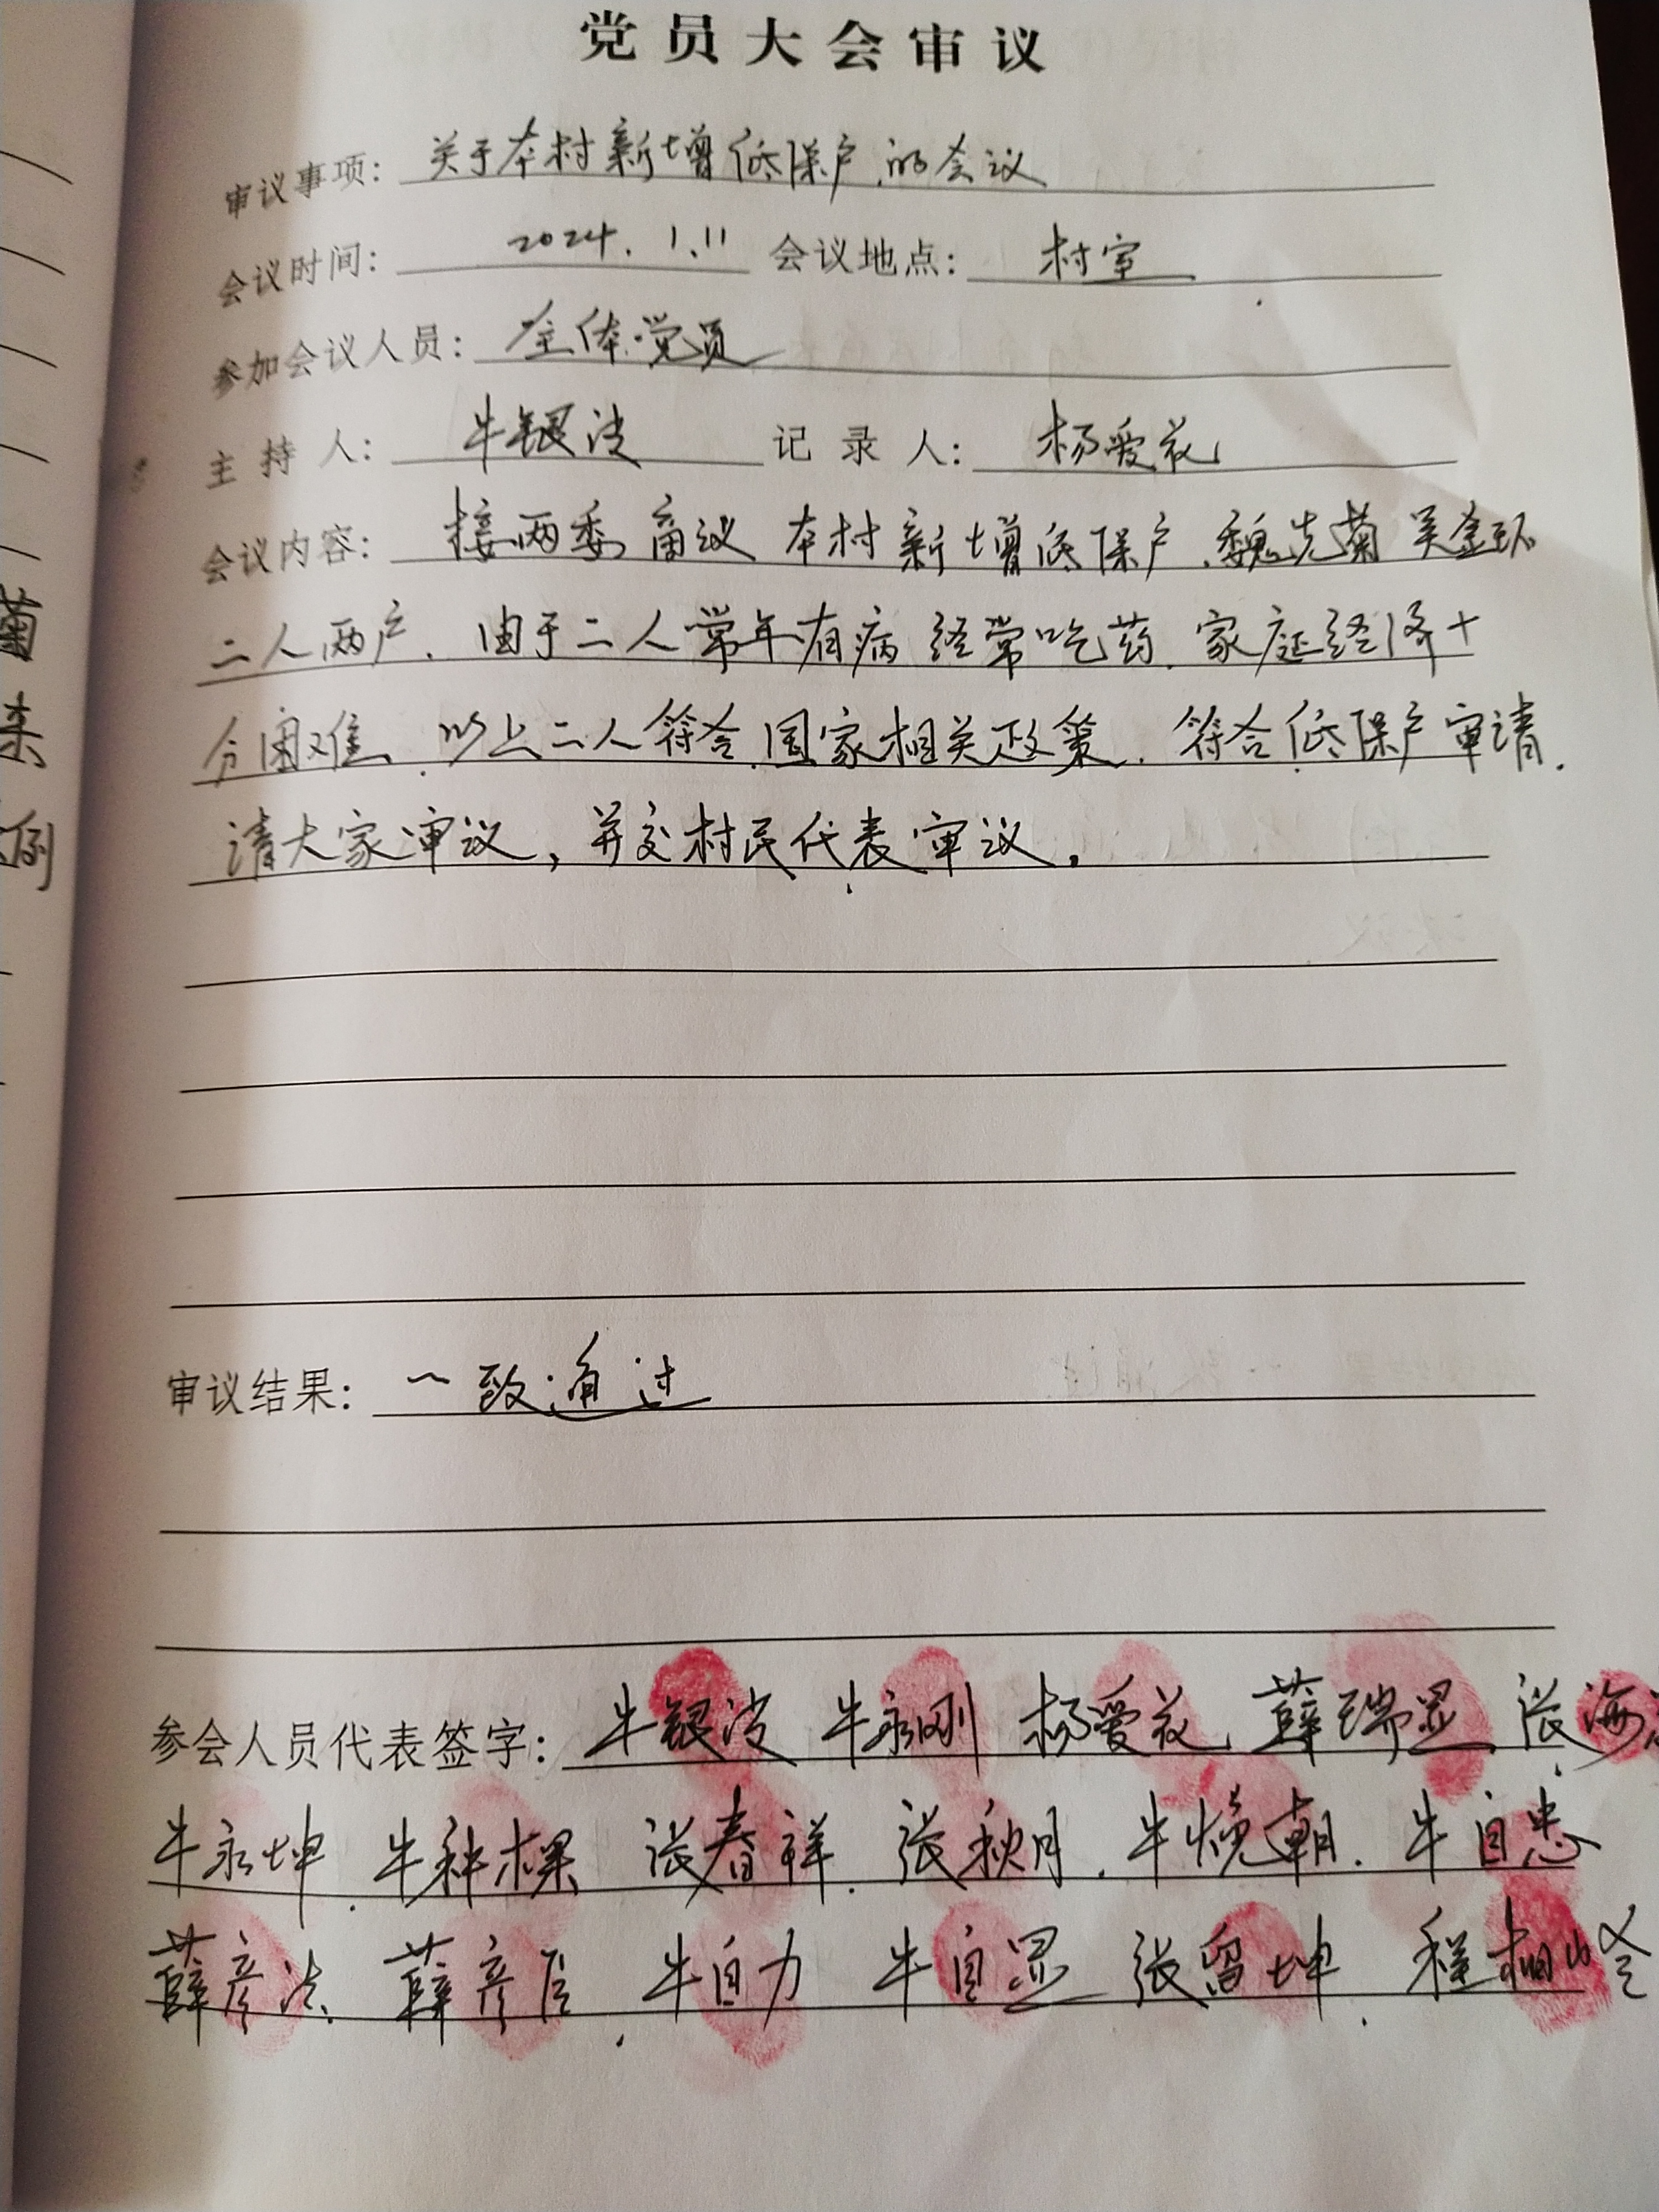 党员大会审议
审议事项：关于本村新增低保户的会议
会议时间：2024.1.11 会议地点：村室
参加会议人员：全体党员
主持人：牛银波 记录人：杨爱花
会议内容：接两委商议 本村新增低保户.魏先菊 吴金环
二人两户.由于二人常年有病 经常吃药.家庭经济十
分困难.以上二人符合国家相关政策.符合低保户审请.
请大家审议，并交村民代表审议。
审议结果：一致通过
参会人员代表签字：牛银波 牛永刚 杨爱花 薛瑞显 张海
牛永坤.牛种棵 张春祥.张秋月.牛晓朝.牛自忠
薛彦法.薛彦启.牛自力 牛自显 张留坤.程相
菊
来
例